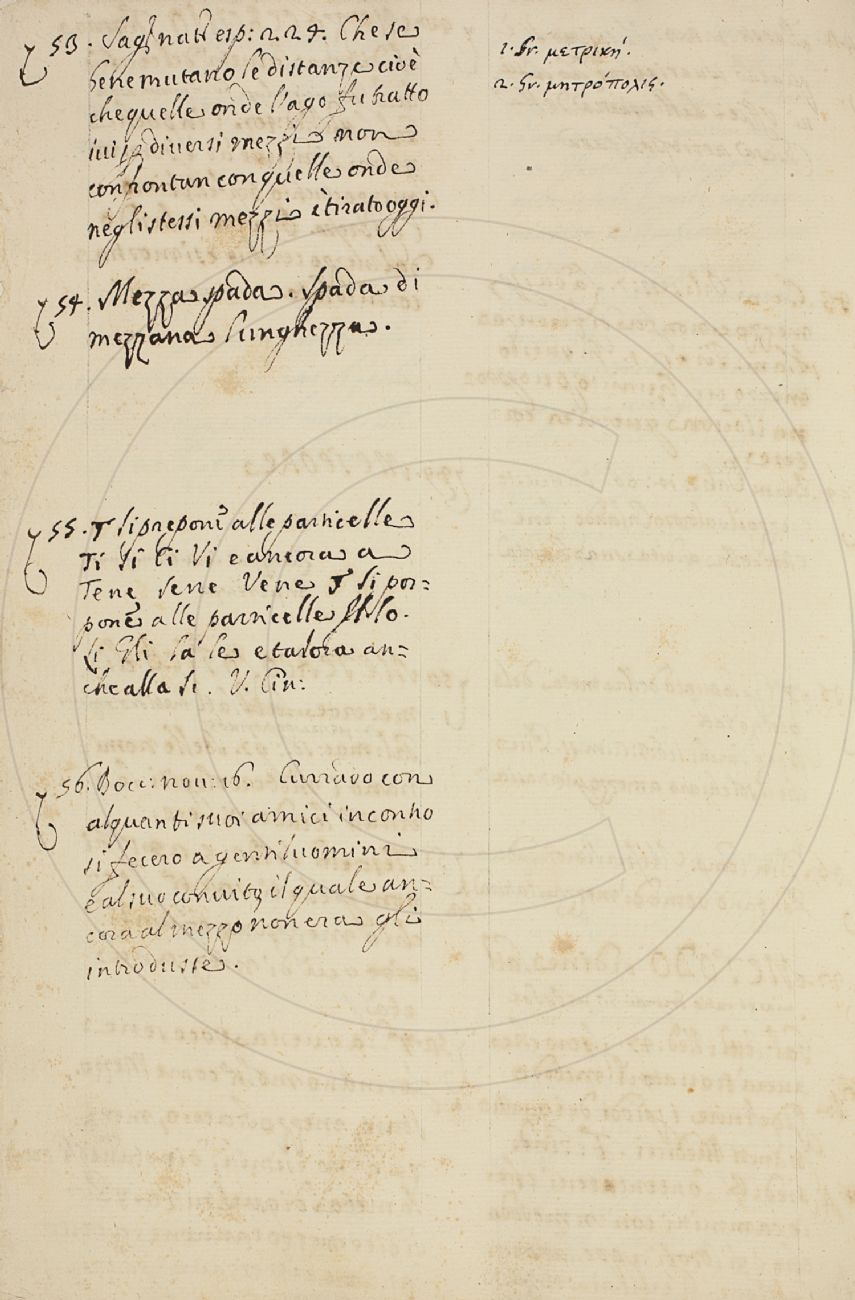 53. Sag: nat: esp: 224. Che se
bene mutano le distanze cioè
che quelle onde l'ago fu tratto
ivi p diversi mezzi non
confrontan con quelle onde
negli stessi mezzi è tirato oggi.
54. Mezza spada. Spada di
mezzana lunghezza.
55. si prepone alle particelle
Ti Si Ci Vi e ancora a
Tene Sene Vene si pos=
pone alle particelle Il Lo.
Li Gli La Le e talora an=
che alla Si. V. Cin:
56. Bocc: nov: 16. Currado con
alquanti suoi amici incontro
si fecero a gentiluomini
e al suo convito il quale an=
cora al mezzo non era gli
introdusse.
1. Gr. μετρική.
2. Gr. μητρόπολις.